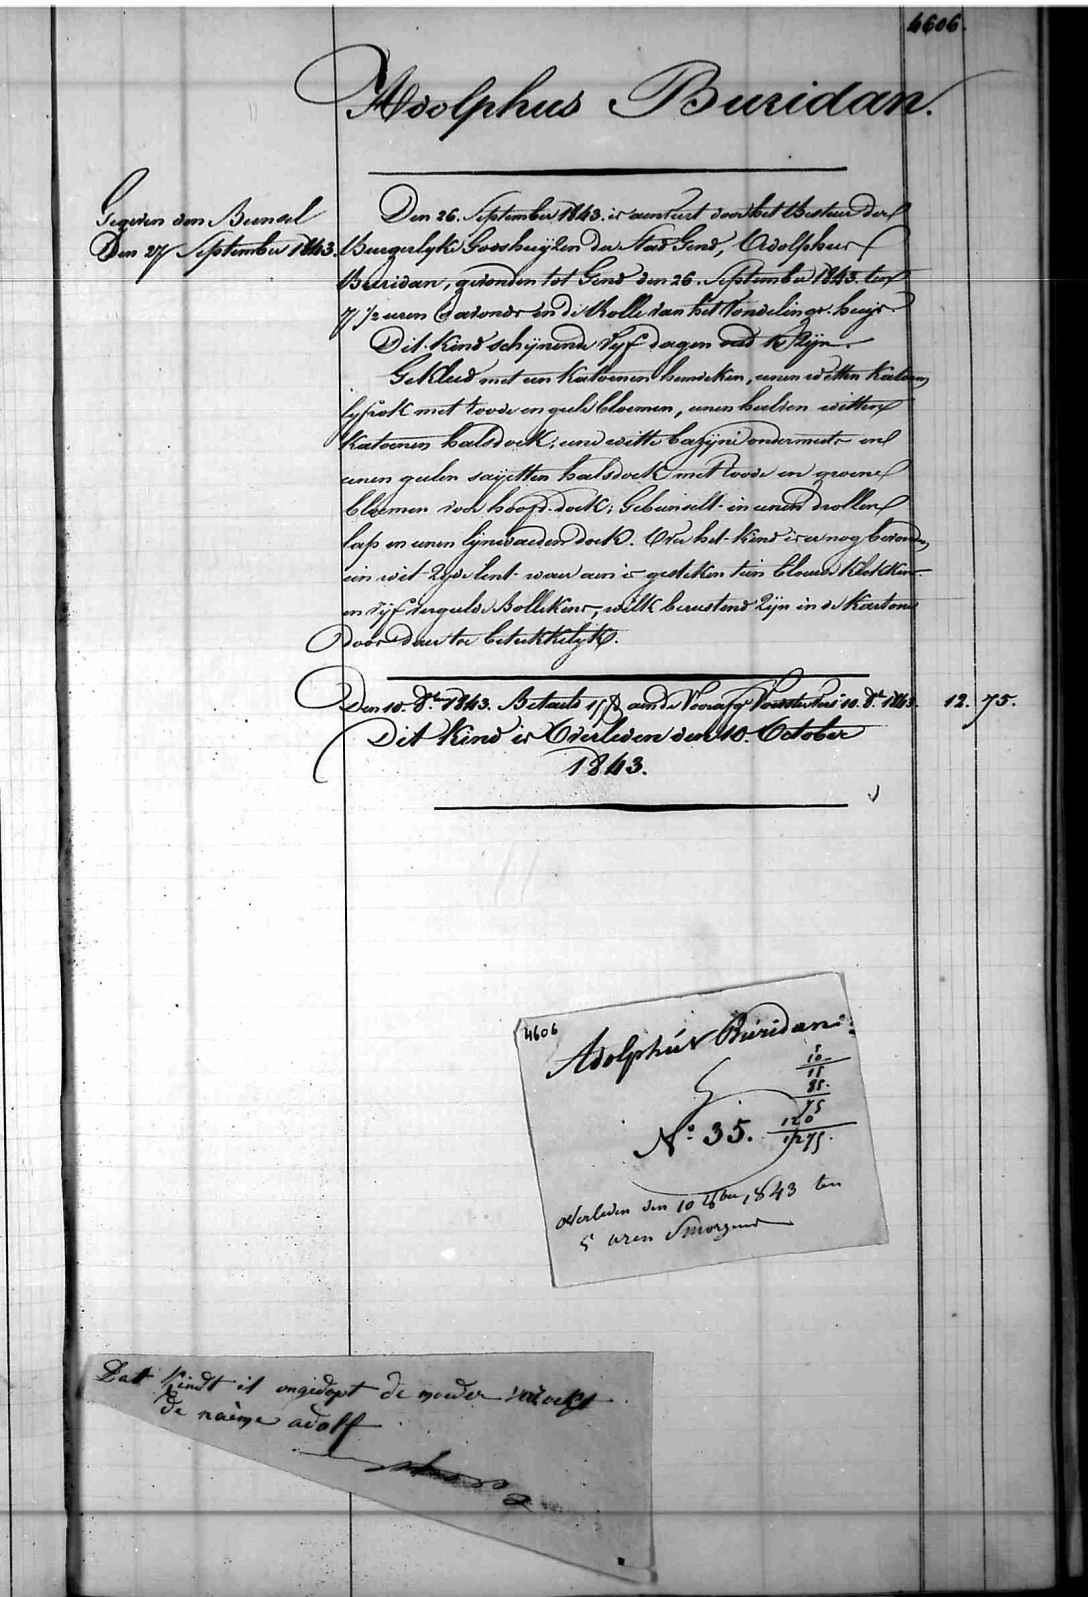 4606.
Adolphus Buridan.
Gegeven den Bunsel
Den 27 September 1843.
Den 26. September 1843. is aenveert door het Bestuer der
Burgerlyke Godshuijzen der Stad Gend, Adolphus
Buridan, gevonden tot Gend den 26. September 1843. ten
7 1/2 uren s'avonds in de Rolle van het Vondelings-huijs.
Dit Kind schijnende Vyf dagen oud te Zijn.
Gekleed met een Katoenen hemdeken, eenen witten Katoen
lyfrok met roode en geele bloemen, eenen witten
Katoenen halsdoek; eene witte bazijne ondermuts en
eenen geelen saijetten halsdoek met roode en groene
bloemen voor hoofd-doek; Gebunselt in eenen wollen
lap en eenen lijnwaeden doek. Over het Kind is er nog bevonden
een wit Zyde lent waer aen is gesteken tien blauwe
en vyf vergulde Bollekens, welk berustend Zijn in de Kartons
door daer toe betrekkelijk.
Den 10. 8.r 1843. Betaelt aen de 10. 8.r 1843. 12. 75.
Dit Kind is Overleden den 10. October
1843.
4606
Adolphús Búridan
5
10
15
85.
75
120
1275.
N.o 35.
overleden den 10 8ber 1843 ten
5 uren Smorgens
Dat Kindt is ongedopt de moeder versoekt
de naeme adolf